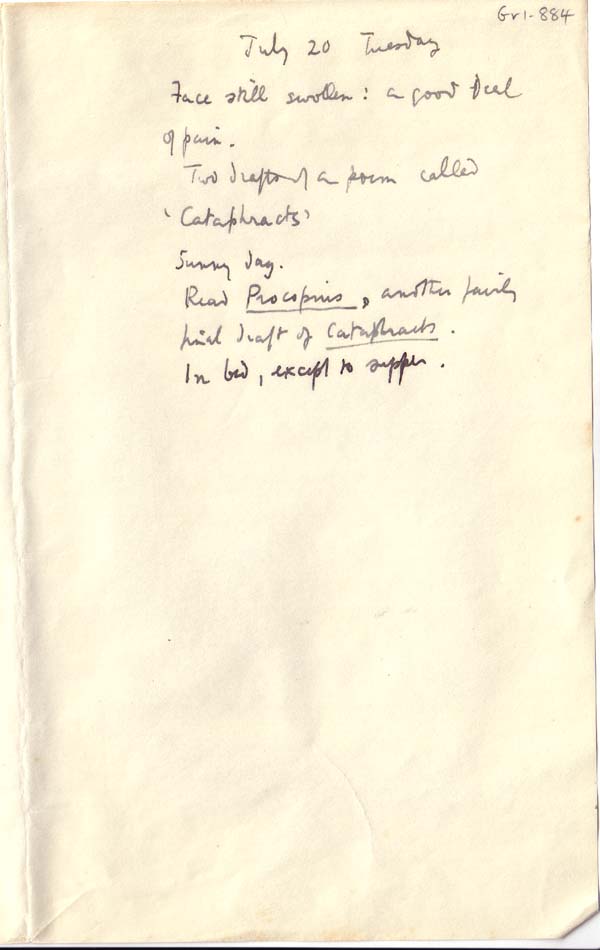 Gr1-884
July 20 Tuesday
Face still swollen: a good deal
of pain.
Two drafts of a poem called
'Cataphracts'
Sunny day.
Read Procopius, another fairly
final draft of Cataphracts.
In bed, except to supper.